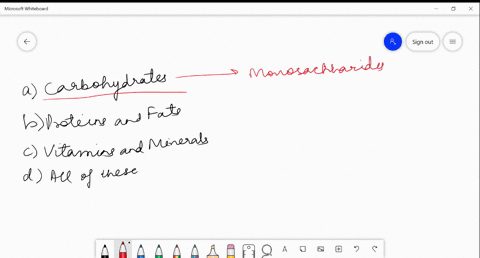 Microsoft Whiteboard
Sign out
a) Carbohydrates → Monosaccharides
b) Proteins and Fats
c) Vitamins and Minerals
d) All of these